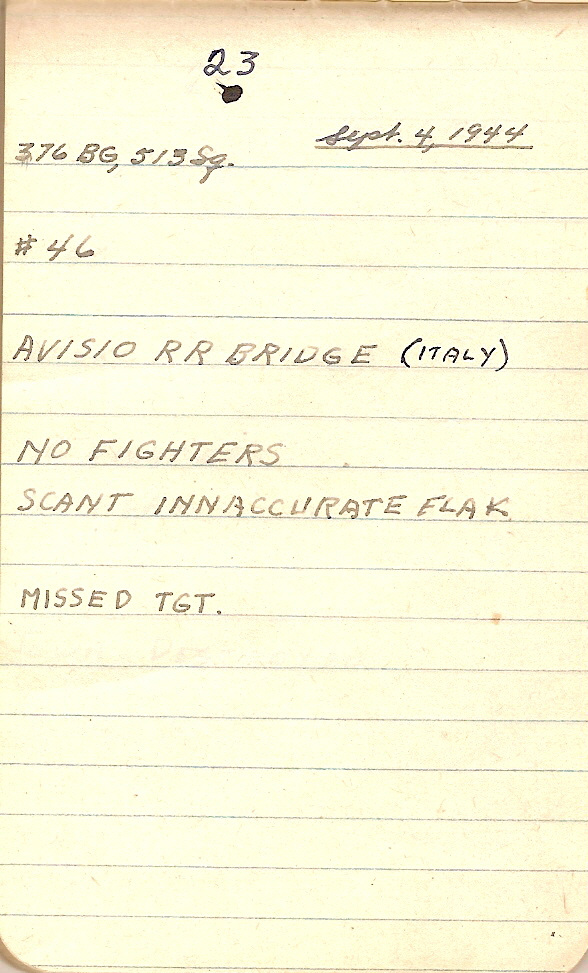 23
Sept. 4, 1944
376 BG, 513 Sq.
# 46
AVISIO RR BRIDGE (ITALY)
NO FIGHTERS
SCANT INNACCURATE FLAK
MISSED TGT.